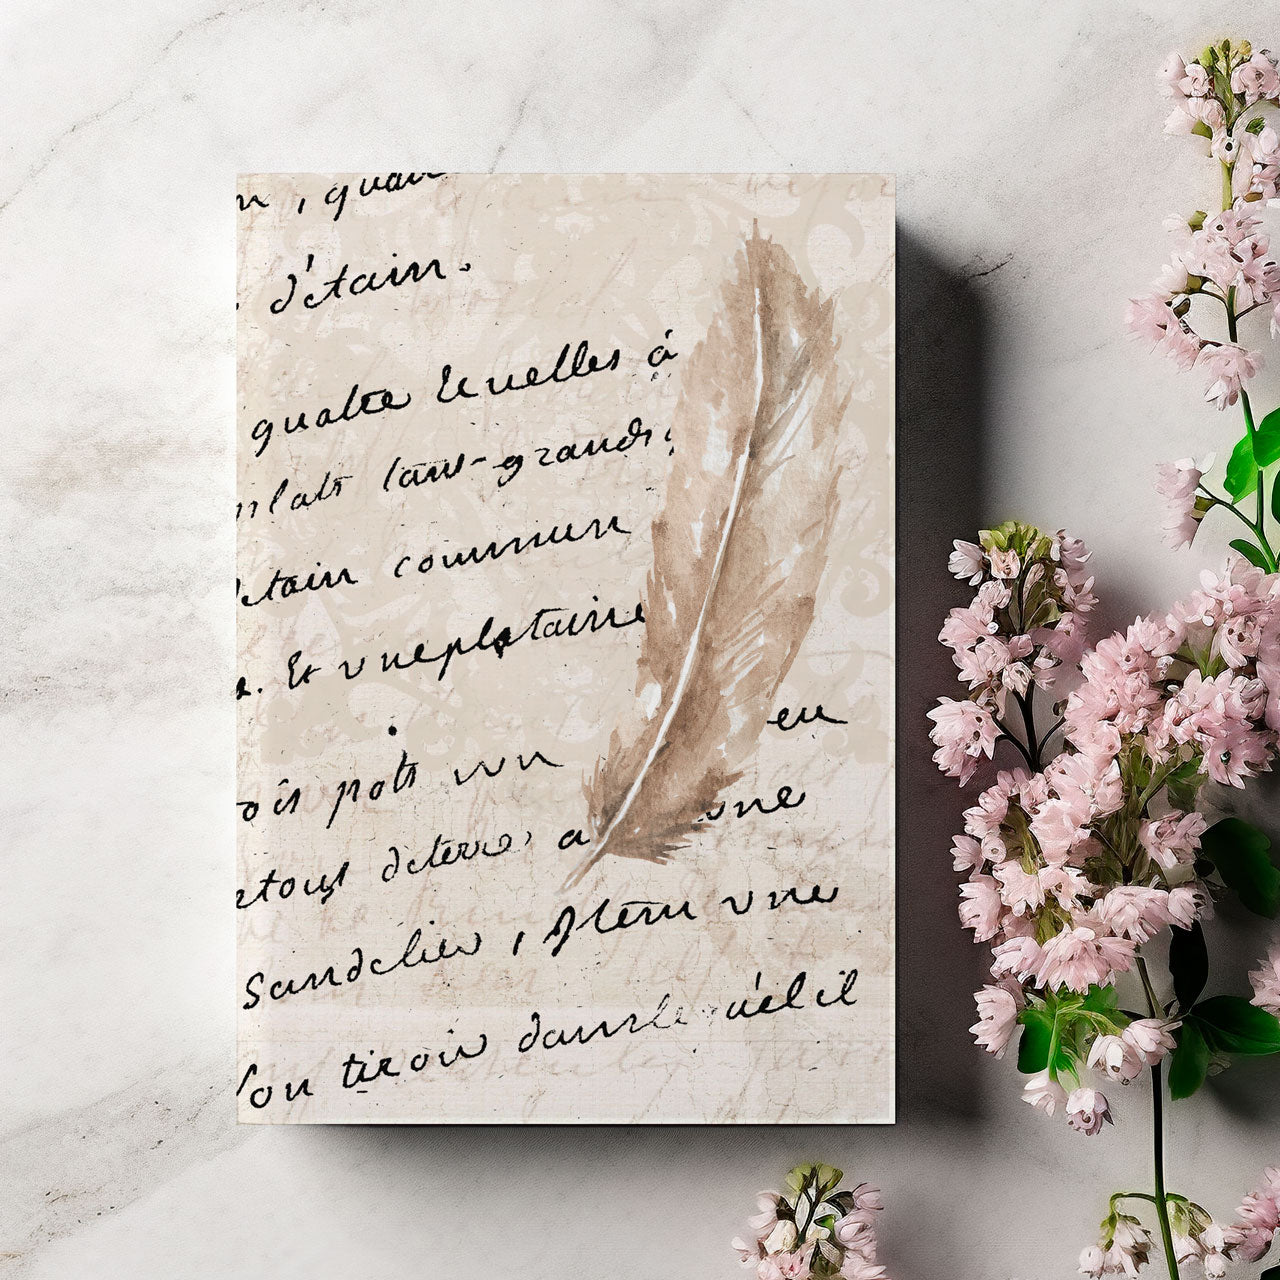 n, quat
d'étain.
quatre Ecuelles à
plats tant-grands,
étain commun
. Et une plataine
ois pots un en
rtout deterre, a une
Sandelier, Item une
on tiroir dans le quel il